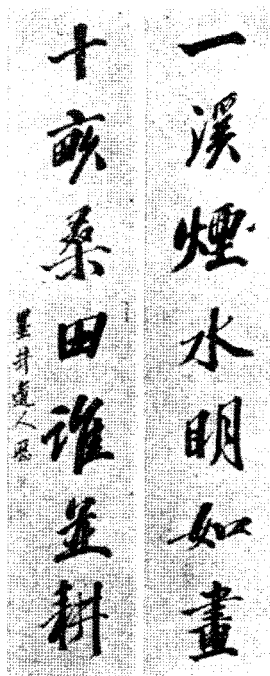 一溪煙水明如畫
十畝桑田誰並耕
墨井道人歷